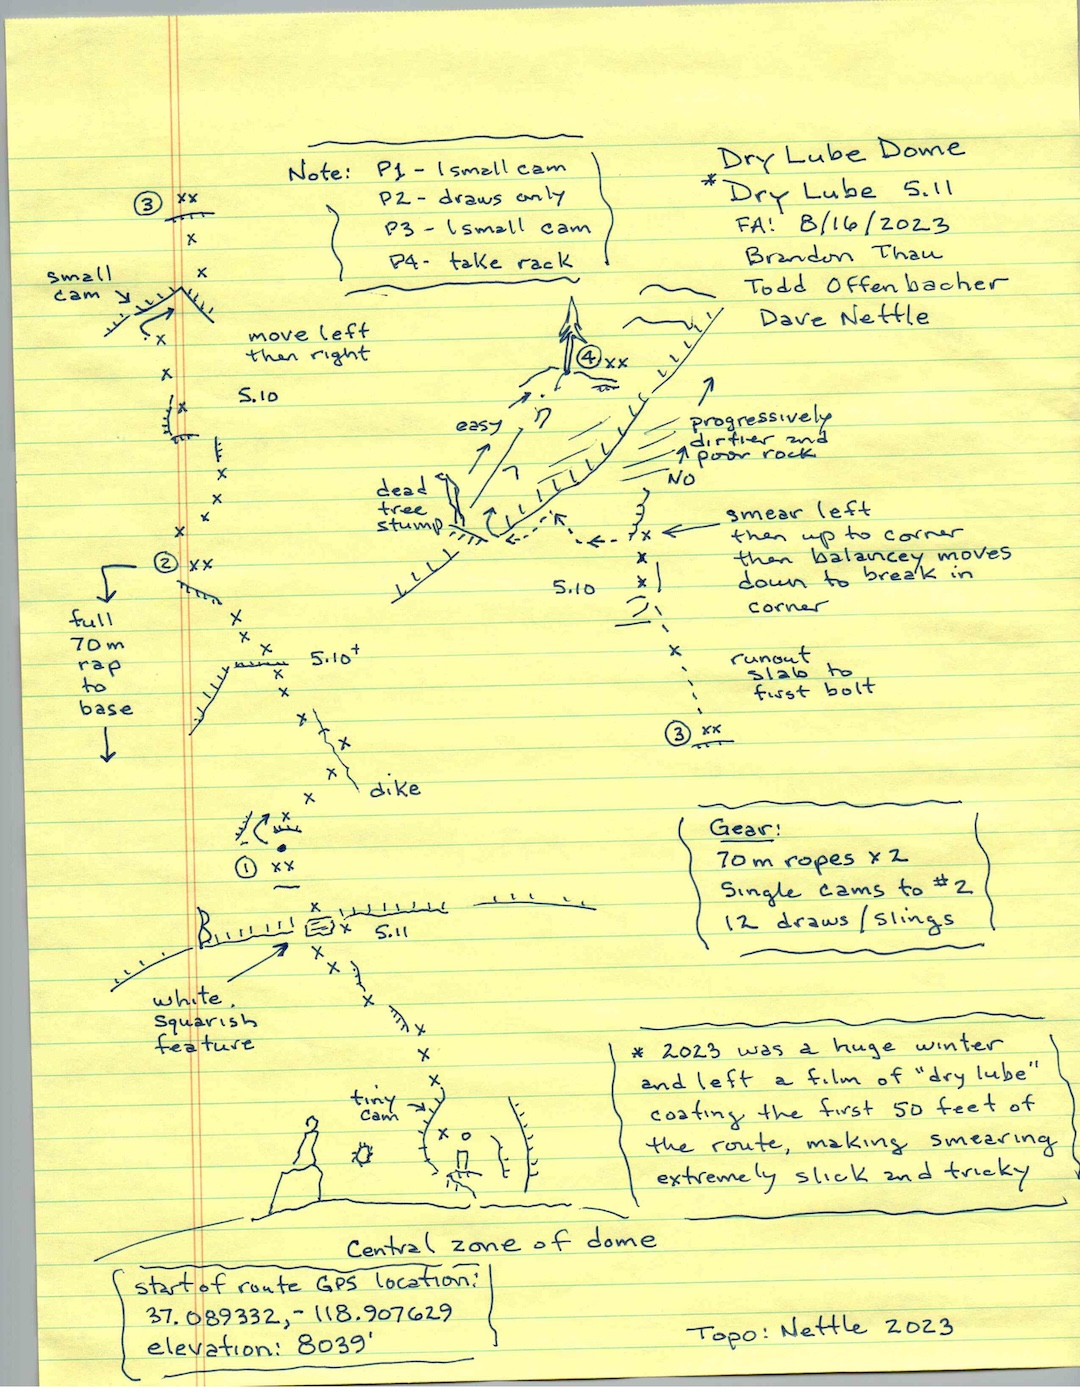 Note: P1 - 1 small cam
P2 - draws only
P3 - 1 small cam
P4 - take rack
Dry Lube Dome
* Dry Lube 5.11
FA: 8/16/2023
Brandon Thau
Todd Offenbacher
Dave Nettle
3 xx
small
cam
move left
then right
5.10
4 xx
easy
dead
tree
stump
progressively
dirtier and
poor rock
NO
smear left
then up to corner
then balancey moves
down to break in
corner
5.10
runout
slab to
first bolt
3 xx
2 xx
full
70m
rap
to
base
5.10+
dike
1 xx
Gear:
70m ropes x 2
Single cams to #2
12 draws/slings
5.11
white
squarish
feature
tiny
cam
* 2023 was a huge winter
and left a film of "dry lube"
coating the first 50 feet of
the route, making smearing
extremely slick and tricky
Central zone of dome
start of route GPS location:
37.089332, -118.907629
elevation: 8039'
Topo: Nettle 2023